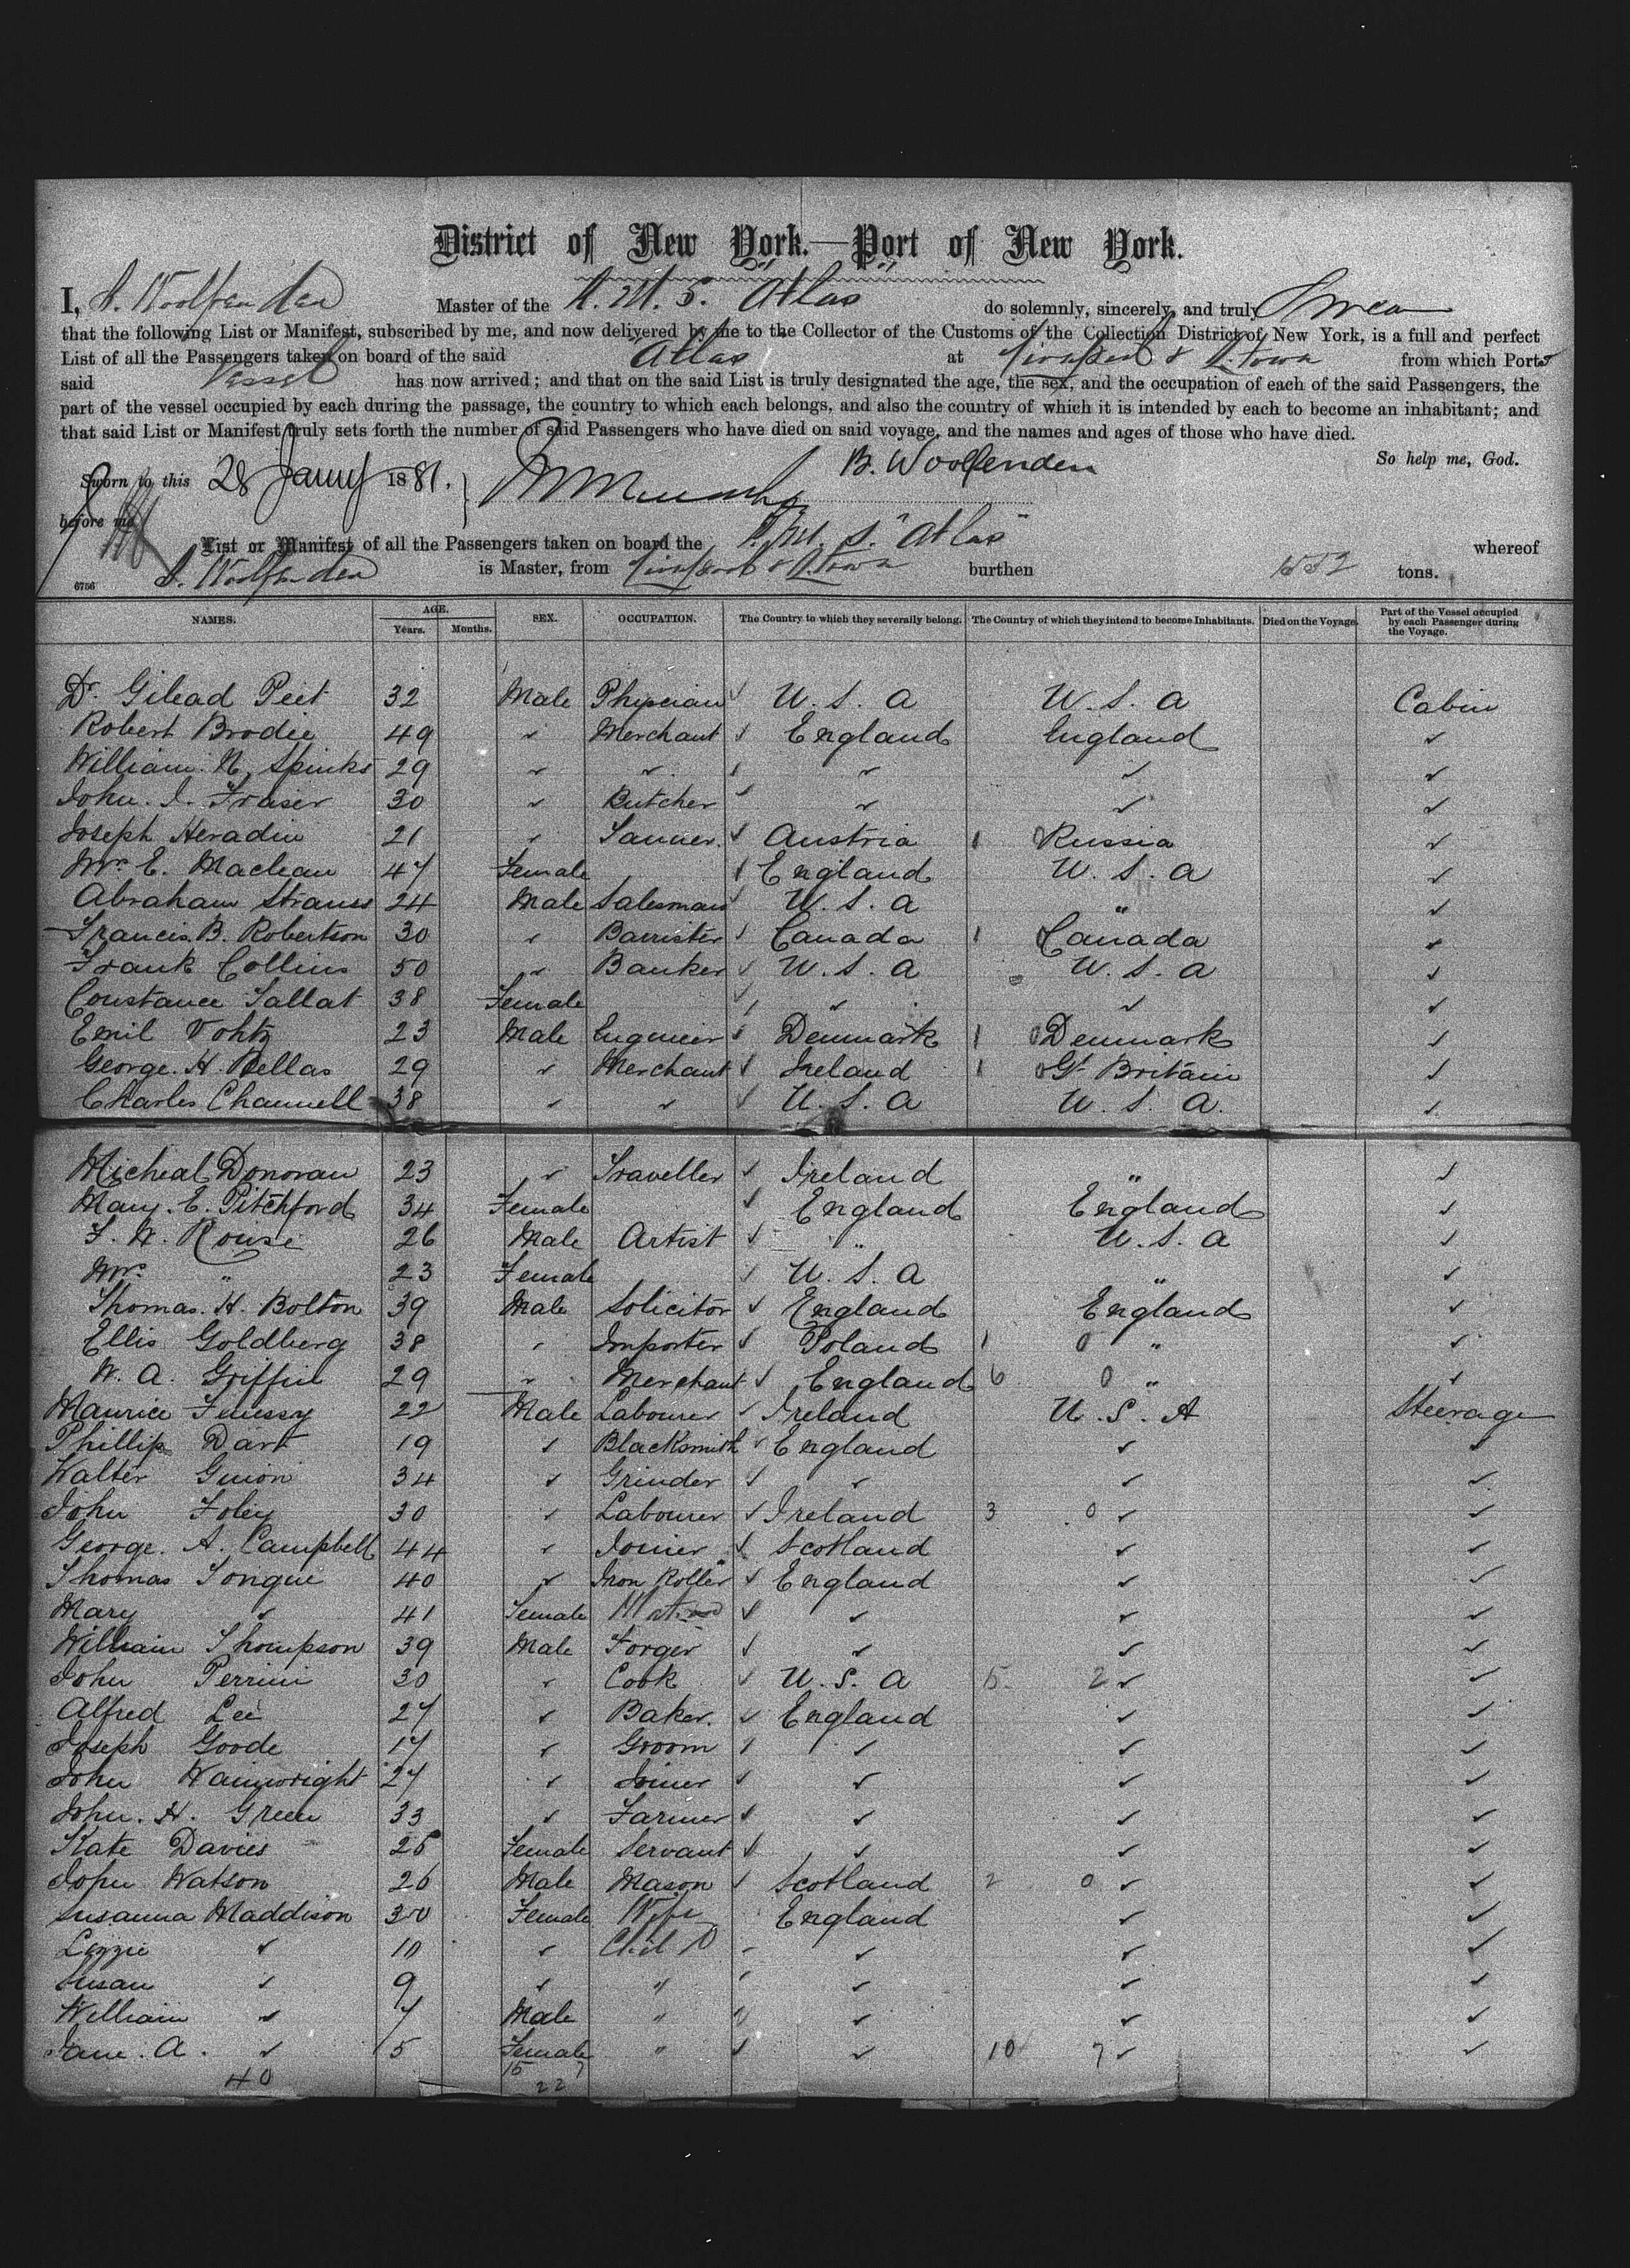 District of New York.—Port of New York.
I, B. Woolfenden Master of the R.M.S. "Atlas" do solemnly, sincerely, and truly Swear
that the following List or Manifest, subscribed by me, and now delivered by me to the Collector of the Customs of the Collection District of New York, is a full and perfect
List of all the Passengers taken on board of the said "Atlas" at Liverpool & Q.town from which Ports
said Vessel has now arrived; and that on the said List is truly designated the age, the sex, and the occupation of each of the said Passengers, the
part of the vessel occupied by each during the passage, the country to which each belongs, and also the country of which it is intended by each to become an inhabitant; and
that said List or Manifest truly sets forth the number of said Passengers who have died on said voyage, and the names and ages of those who have died.
B. Woolfenden So help me, God.
Sworn to this 28 Janny 1881.
before me
List or Manifest of all the Passengers taken on board the R.M.S. "Atlas" whereof
6756 B. Woolfenden is Master, from Liverpool & Q.town burthen 1552 tons.
NAMES. AGE. Years. Months. SEX. OCCUPATION. The Country to which they severally belong. The Country of which they intend to become Inhabitants. Died on the Voyage. Part of the Vessel occupied by each Passenger during the Voyage.
Dr. Gilead Peet 32 Male Physician ✓ U.S.A U.S.A Cabin
Robert Brodie 49 ✓ Merchant ✓ England England ✓
William. N. Spinks 29 ✓ ✓ ✓ ✓ ✓ ✓
John. I. Fraser 30 ✓ Butcher ✓ ✓ ✓ ✓
Joseph Heradin 21 ✓ Tanner. ✓ Austria 1 Russia ✓
Mrs. E. Maclean 47 Female ✓ England U.S.A ✓
Abraham Strauss 24 Male Salesman ✓ U.S.A " ✓
Francis. B. Robertson 30 ✓ Barrister ✓ Canada 1 0 Canada ✓
Frank Collins 50 ✓ Banker ✓ U.S.A U.S.A ✓
Constance Tallat 38 Female ✓ ✓ ✓ ✓
Emil Vohtz 23 Male Engineer ✓ Denmark 1 0 Denmark ✓
George. H. Bellas 29 ✓ Merchant ✓ Ireland 1 0 Gt. Britain ✓
Charles Channell 38 ✓ ✓ ✓ U.S.A U.S.A. ✓
Micheal Donovan 23 ✓ Traveller ✓ Ireland " ✓
Mary. E. Pitchford 34 Female ✓ England England ✓
F. W. Rouse 26 Male Artist ✓ " U.S.A ✓
Mrs. " 23 Female ✓ U.S.A " ✓
Thomas. H. Bolton 39 Male Solicitor ✓ England England ✓
Ellis Goldberg 38 ✓ Importer ✓ Poland 1 0 " ✓
W. A. Griffin 29 ✓ Merchant ✓ England 6 0 " ✓
Maurice Fenessy 22 Male Labourer ✓ Ireland U.S.A Steerage
Phillip Dart 19 ✓ Blacksmith ✓ England ✓ ✓
Walter Guion 34 ✓ Grinder ✓ ✓ ✓ ✓
John Foley 30 ✓ Labourer ✓ Ireland 3 0 ✓ ✓
George. A. Campbell 44 ✓ Joiner ✓ Scotland ✓ ✓
Thomas Tongue 40 ✓ Iron Roller ✓ England ✓ ✓
Mary ✓ 41 Female ✓ ✓ ✓ ✓
William Thompson 39 Male Forger ✓ ✓ ✓ ✓
John Perrini 30 ✓ Cook ✓ U.S.A 15 2 ✓ ✓
Alfred Lee 27 ✓ Baker. ✓ England ✓ ✓
Joseph Goode 17 ✓ Groom ✓ ✓ ✓ ✓
John Wainwright 27 ✓ Joiner ✓ ✓ ✓ ✓
John. H. Green 33 ✓ Farmer ✓ ✓ ✓ ✓
Kate Davies 25 Female Servant ✓ ✓ ✓ ✓
John Watson 26 Male Mason ✓ Scotland 2 0 ✓ ✓
Susanna Maddison 30 Female Wife England ✓ ✓
Lizzie ✓ 10 ✓ Child ✓ ✓ ✓ ✓
Susan ✓ 9 ✓ " ✓ ✓ ✓ ✓
William ✓ 7 Male " ✓ ✓ ✓ ✓
Jane. A. ✓ 5 Female " ✓ ✓ 10 7 ✓ ✓
40 15 7
22